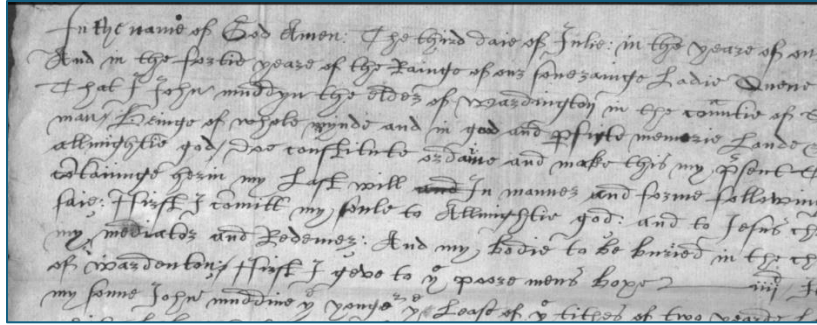 In the name of God Amen: The third daie of Julie: in the yeare of our
And in the fortie yeare of the Rainge of our soverainge Ladie Quene
That I John muddyn the elder of wardington in the countie of
man/ Beinge of whole mynde and in god and pfitte memorie Laude
allmightie god/ doe constitute ordaine and make this my psent
cotaininge herin my Last will and In manner and forme followin
saie: ffirst I comitt my soule to Allmightie god: and to Jesus ch
my mediator and Redemer: And my bodie to be buried in the ch
of wardenton/ ffirst I geve to ye poore mens boxe iiij
my sonne John muddine ye yonger ye Lease of ye tithes of two yearde